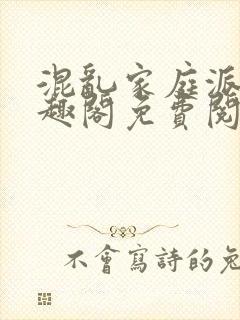 混亂家庭派
趣閣免費閱
不會寫詩的兔